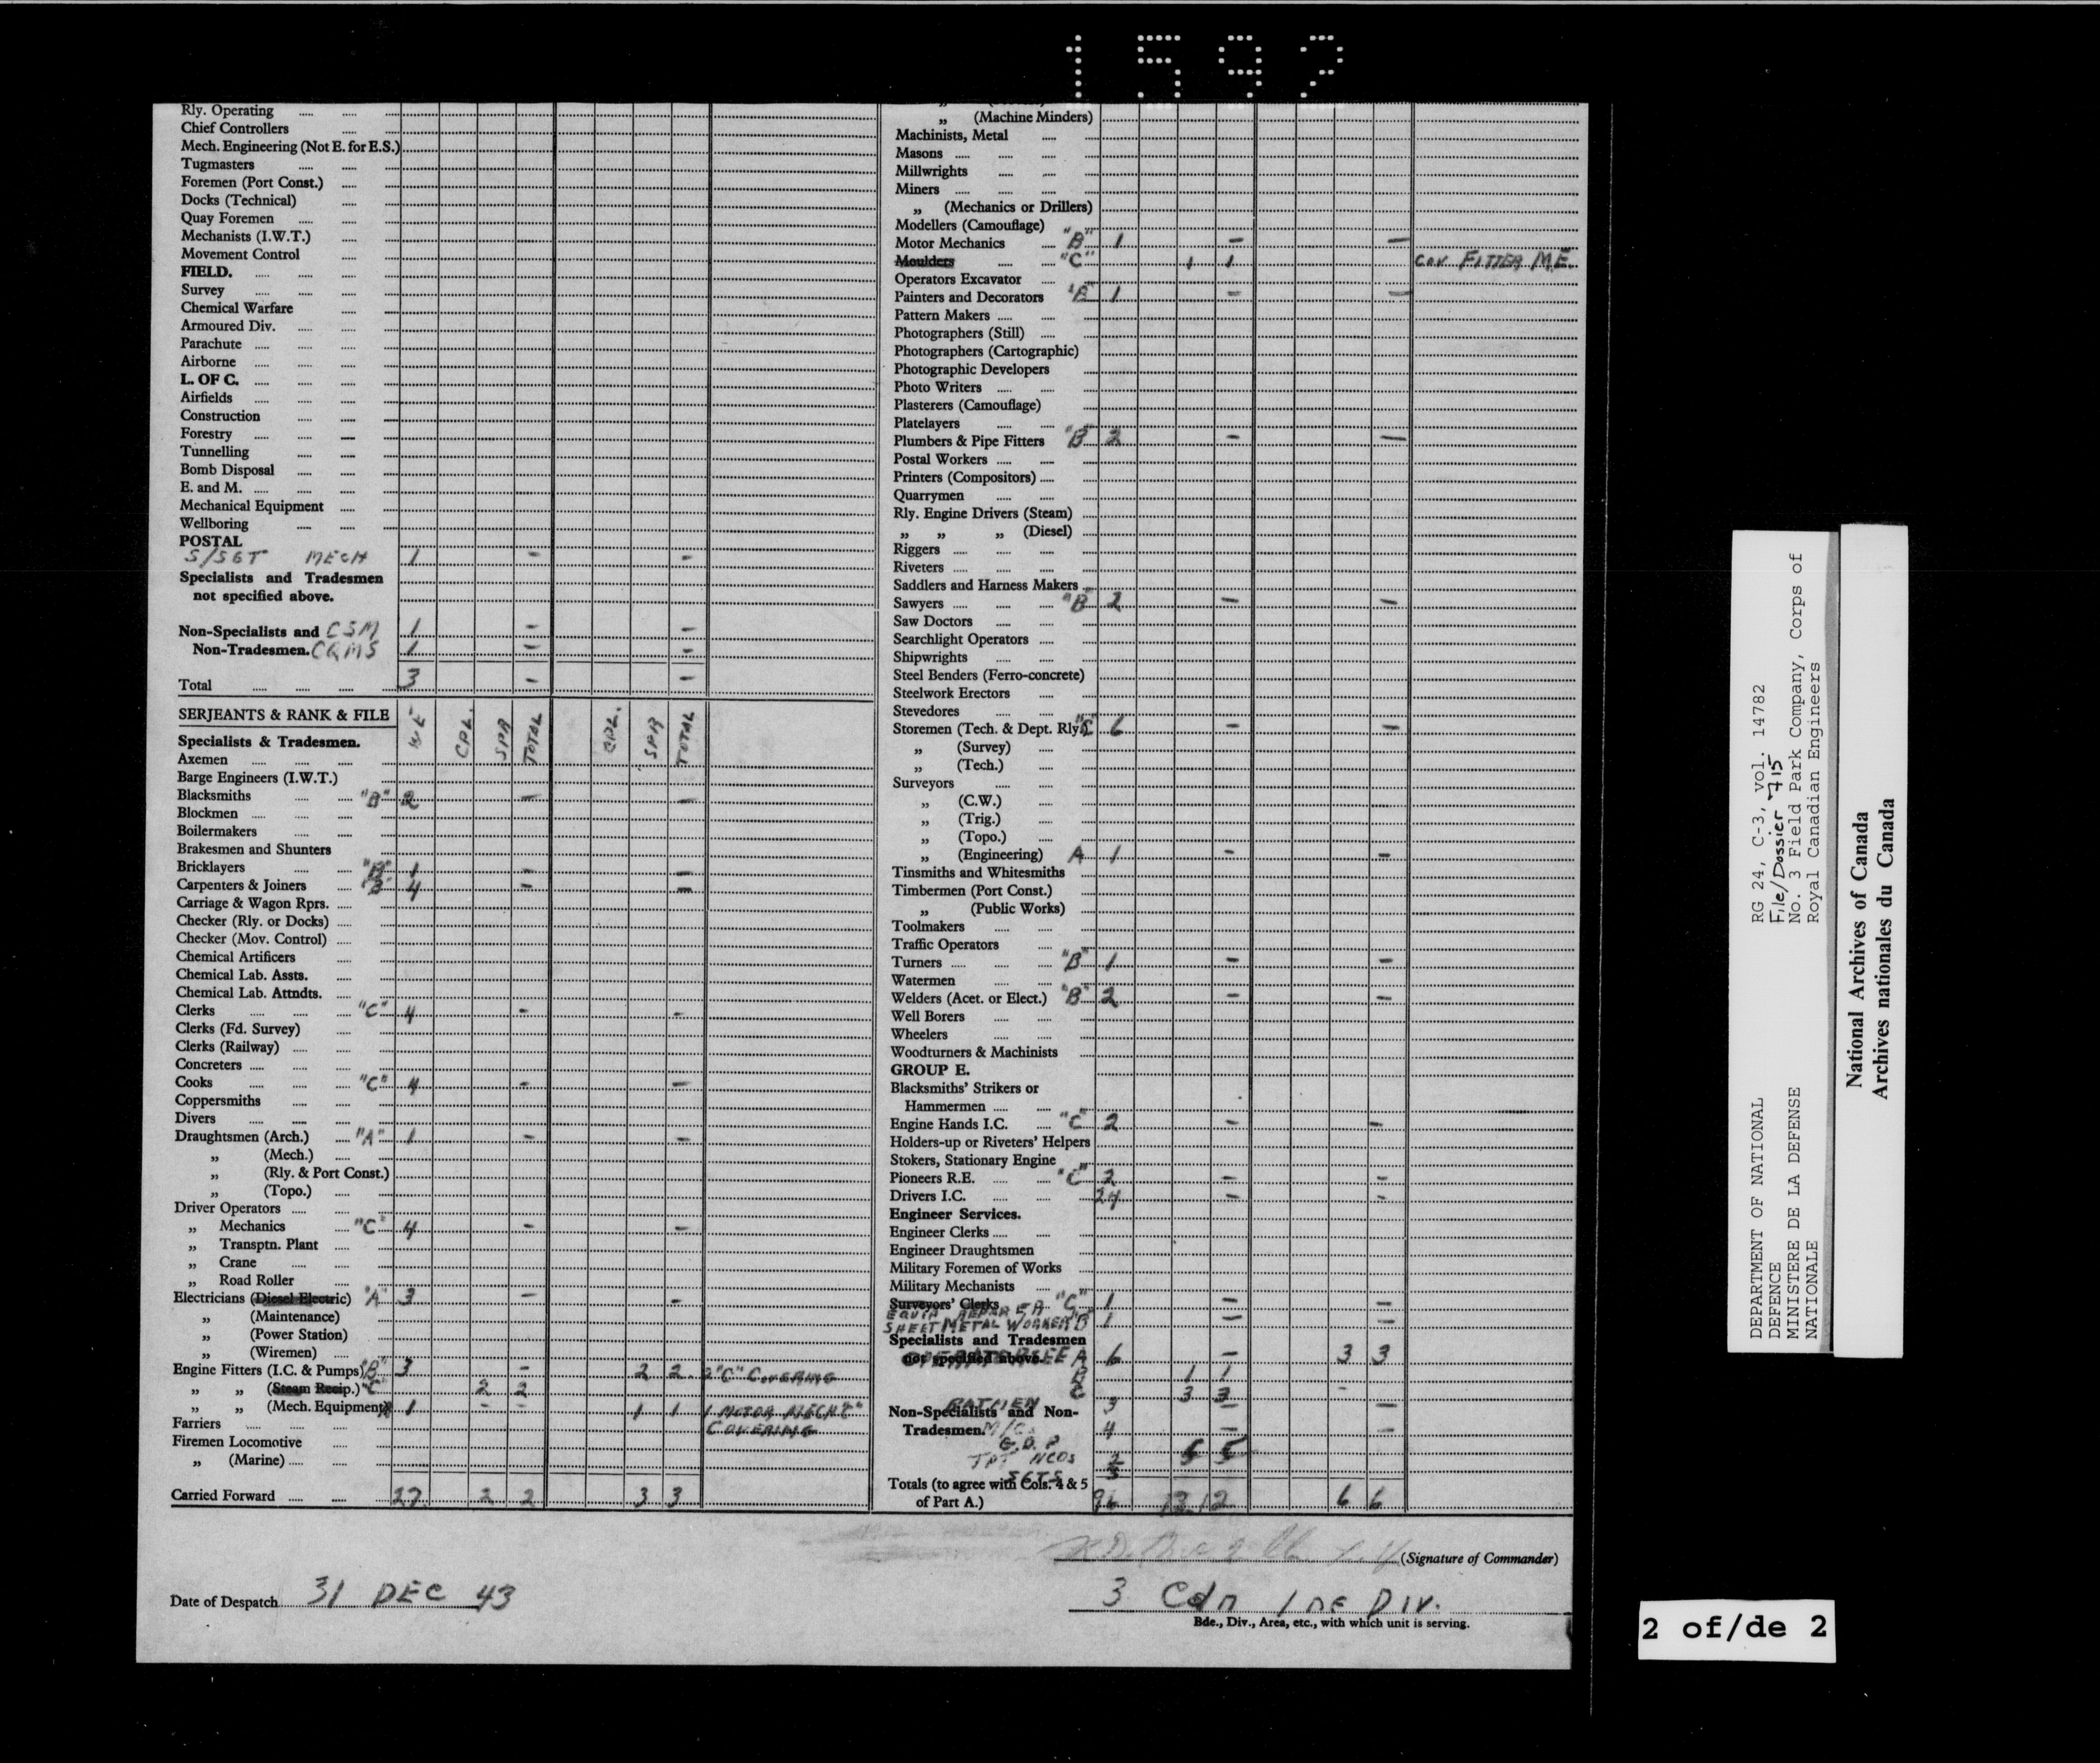 1592
Rly. Operating
Chief Controllers
Mech. Engineering (Not E. for E.S.)
Tugmasters
Foremen (Port Const.)
Docks (Technical)
Quay Foremen
Mechanists (I.W.T.)
Movement Control
FIELD.
Survey
Chemical Warfare
Armoured Div.
Parachute
Airborne
L. OF C.
Airfields
Construction
Forestry
Tunnelling
Bomb Disposal
E. and M.
Mechanical Equipment
Wellboring
POSTAL
S/SGT MECH 1 - -
Specialists and Tradesmen
not specified above.
Non-Specialists and CSM 1 - -
Non-Tradesmen. CQMS 1 - -
Total 3 - -
SERJEANTS & RANK & FILE WE CPL. SPR TOTAL CPL. SPR TOTAL
Specialists & Tradesmen.
Axemen
Barge Engineers (I.W.T.)
Blacksmiths "B" 2 - -
Blockmen
Boilermakers
Brakesmen and Shunters
Bricklayers "B" 1 - -
Carpenters & Joiners "B" 4 - -
Carriage & Wagon Rprs.
Checker (Rly. or Docks)
Checker (Mov. Control)
Chemical Artificers
Chemical Lab. Assts.
Chemical Lab. Attndts.
Clerks "C" 4 - -
Clerks (Fd. Survey)
Clerks (Railway)
Concreters
Cooks "C" 4 - -
Coppersmiths
Divers
Draughtsmen (Arch.) "A" 1 - -
„ (Mech.)
„ (Rly. & Port Const.)
„ (Topo.)
Driver Operators
„ Mechanics "C" 4 - -
„ Transptn. Plant
„ Crane
„ Road Roller
Electricians (Diesel Electric) "A" 3 - -
„ (Maintenance)
„ (Power Station)
„ (Wiremen)
Engine Fitters (I.C. & Pumps) "B" 3 - 2 2 2 "C" COVERING
„ „ (Steam Recip.) "C" 2 2
„ „ (Mech. Equipment) 1 - - 1 1 1 MOTOR MECH "C"
COVERING
Farriers
Firemen Locomotive
„ (Marine)
Carried Forward 27 2 2 3 3
„ (Machine Minders)
Machinists, Metal
Masons
Millwrights
Miners
„ (Mechanics or Drillers)
Modellers (Camouflage)
Motor Mechanics "B" 1 - -
Moulders "C" 1 1 COV. FITTER M.E.
Operators Excavator
Painters and Decorators "B" 1 - -
Pattern Makers
Photographers (Still)
Photographers (Cartographic)
Photographic Developers
Photo Writers
Plasterers (Camouflage)
Platelayers
Plumbers & Pipe Fitters "B" 2 - -
Postal Workers
Printers (Compositors)
Quarrymen
Rly. Engine Drivers (Steam)
„ „ „ (Diesel)
Riggers
Riveters
Saddlers and Harness Makers
Sawyers "B" 2 - -
Saw Doctors
Searchlight Operators
Shipwrights
Steel Benders (Ferro-concrete)
Steelwork Erectors
Stevedores
Storemen (Tech. & Dept. Rly.) "C" 6 - -
„ (Survey)
„ (Tech.)
Surveyors
„ (C.W.)
„ (Trig.)
„ (Topo.)
„ (Engineering) A 1 - -
Tinsmiths and Whitesmiths
Timbermen (Port Const.)
„ (Public Works)
Toolmakers
Traffic Operators
Turners "B" 1 - -
Watermen
Welders (Acet. or Elect.) "B" 2 - -
Well Borers
Wheelers
Woodturners & Machinists
GROUP E.
Blacksmiths' Strikers or
Hammermen
Engine Hands I.C. "C" 2 - -
Holders-up or Riveters' Helpers
Stokers, Stationary Engine
Pioneers R.E. "C" 2 - -
Drivers I.C. 24 - -
Engineer Services.
Engineer Clerks
Engineer Draughtsmen
Military Foremen of Works
Military Mechanists
Surveyors' Clerks "C" 1 - -
EQUIP REPAIRER
SHEET METAL WORKER "B" 1 - -
Specialists and Tradesmen
not specified above. OPERATOR EE A 6 - 3 3
B 1 1
C 3 3 -
BATMEN 3 - -
Non-Specialists and Non-
Tradesmen. M/C 4 - -
G.D.P 5 5
TPT NCOs 2
SGTS 3
Totals (to agree with Cols. 4 & 5
of Part A.) 96 12 6 6
(Signature of Commander)
Date of Despatch 31 DEC 43
3 Cdn Inf Div.
Bde., Div., Area, etc., with which unit is serving.
DEPARTMENT OF NATIONAL
DEFENCE
MINISTERE DE LA DEFENSE
NATIONALE
RG 24, C-3, vol. 14782
File/Dossier 715
No. 3 Field Park Company, Corps of
Royal Canadian Engineers
National Archives of Canada
Archives nationales du Canada
2 of/de 2